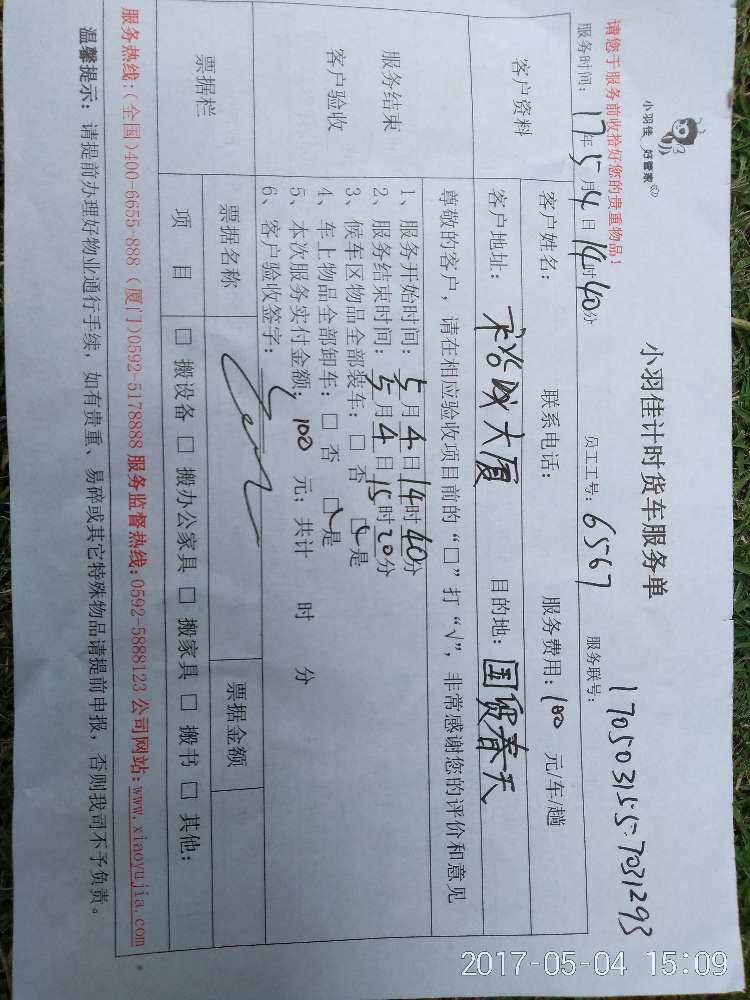 小羽佳 好管家
小羽佳计时货车服务单
请您于服务前收拾好您的贵重物品！
员工工号：6567 服务联号：170503155-7031293
服务时间：17年5月4日14时40分
客户资料
客户姓名： 联系电话： 服务费用：100 元/车/趟
客户地址：大厦 目的地：国贸春天
服务结束
客户验收
尊敬的客户，请在相应验收项目前的“□”打“√”，非常感谢您的评价和意见
1、服务开始时间：5月4日14时40分
2、服务结束时间：5月4日15时20分
3、候车区物品全部装车：□ 否 ☑是
4、车上物品全部卸车：□ 否 ☑是
5、本次服务实付金额：100 元；共计 时 分
6、客户验收签字：
票据栏
票据名称 票据金额
项 目 □ 搬设备 □ 搬办公家具 □ 搬家具 □ 搬书 □ 其他：
服务热线：（全国）400-6655-888（厦门）0592-5178888 服务监督热线：0592-5888123 公司网站：www.xiaoyujia.com
温馨提示：请提前办理好物业通行手续，如有贵重、易碎或其它特殊物品请提前申报，否则我司不予负责。
2017-05-04 15:09